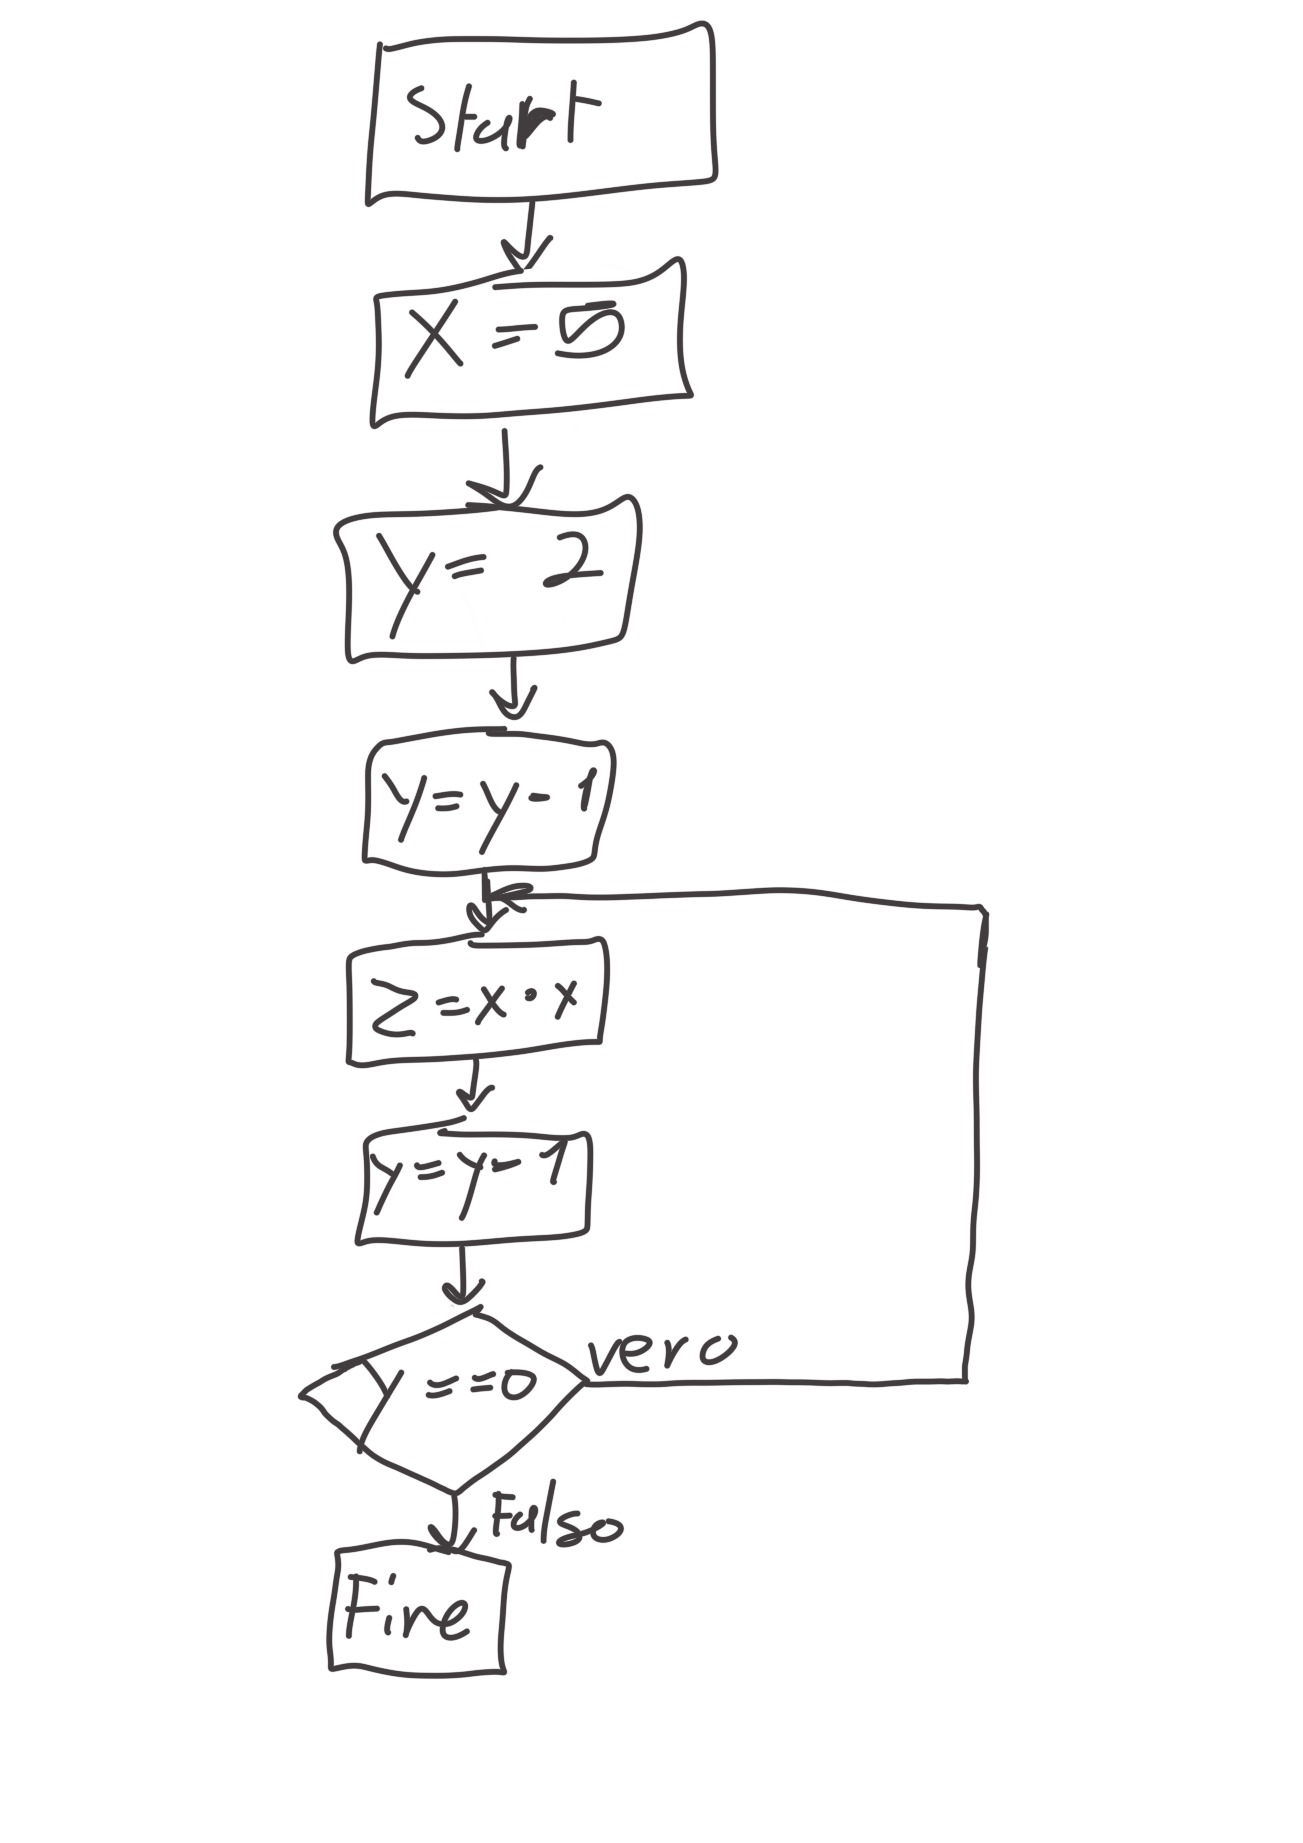 Start
X = 5
y = 2
y = y - 1
Z = x • x
y = y - 1
y == 0
vero
Falso
Fine